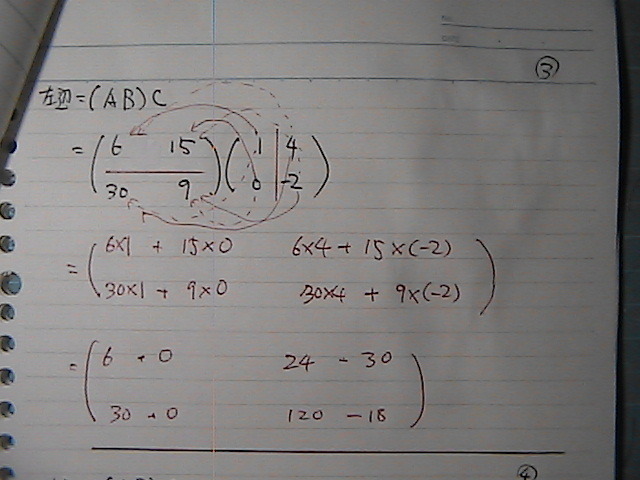 ③
左辺=(AB)C
=(6 15 (1 4
30 9) 0 -2)
=(6×1 + 15×0 6×4 + 15×(-2)
30×1 + 9×0 30×4 + 9×(-2))
=(6 + 0 24 - 30
30 + 0 120 - 18)
④